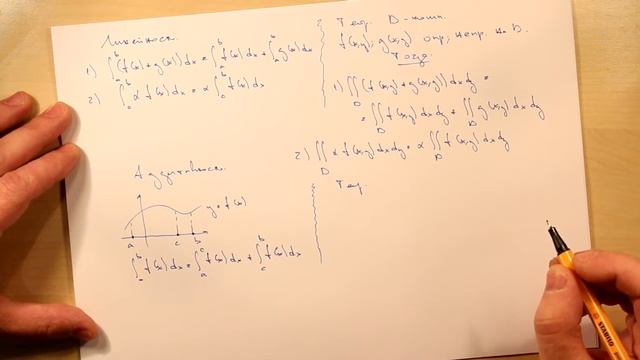 Линейность.
1) ∫_a^b (f(x)+g(x))dx = ∫_a^b f(x)dx + ∫_a^b g(x)dx
2) ∫_a^b α f(x)dx = α ∫_a^b f(x)dx
Аддитивность.
y=f(x)
a c b
∫_a^b f(x)dx = ∫_a^c f(x)dx + ∫_c^b f(x)dx
Теор. D-комп.
f(x,y); g(x,y) опр, непр. на D.
Тогда
1) ∬_D (f(x,y)+g(x,y))dxdy =
= ∬_D f(x,y)dxdy + ∬_D g(x,y)dxdy
2) ∬_D α f(x,y)dxdy = α ∬_D f(x,y)dxdy
Теор.
STABILO